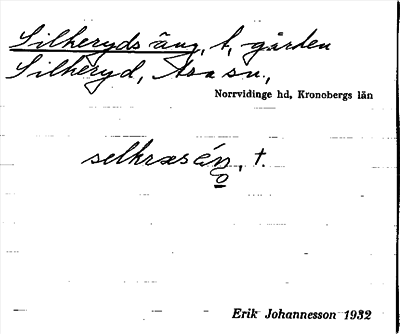 Silheryds äng, t, gården
Silheryd, Asa sn.,
Norrvidinge hd, Kronobergs län
selkræsén̥, t.
Erik Johannesson 1932